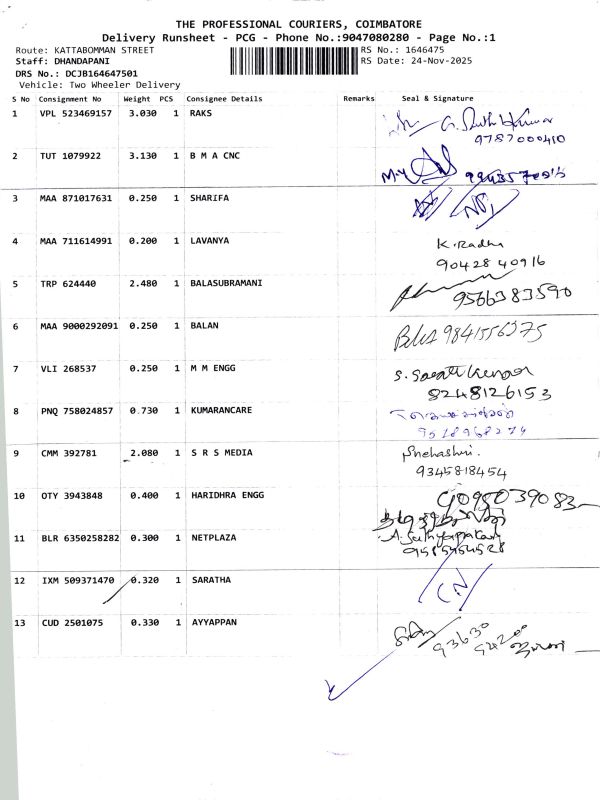 THE PROFESSIONAL COURIERS, COIMBATORE
Delivery Runsheet - PCG - Phone No.:9047080280 - Page No.:1
Route: KATTABOMMAN STREET RS No.: 1646475
Staff: DHANDAPANI RS Date: 24-Nov-2025
DRS No.: DCJB164647501
Vehicle: Two Wheeler Delivery
S No Consignment No Weight PCS Consignee Details Remarks Seal & Signature
1 VPL 523469157 3.030 1 RAKS
9787000410
2 TUT 1079922 3.130 1 B M A CNC
3 MAA 871017631 0.250 1 SHARIFA
4 MAA 711614991 0.200 1 LAVANYA K.Radha
9042840916
5 TRP 624440 2.480 1 BALASUBRAMANI
9566383590
6 MAA 9000292091 0.250 1 BALAN
7 VLI 268537 0.250 1 M M ENGG
8248126153
8 PNQ 758024857 0.730 1 KUMARANCARE
9 CMM 392781 2.080 1 S R S MEDIA Snehashri.
9345818454
10 OTY 3943848 0.400 1 HARIDHRA ENGG
11 BLR 6350258282 0.300 1 NETPLAZA
12 IXM 509371470 0.320 1 SARATHA
13 CUD 2501075 0.330 1 AYYAPPAN